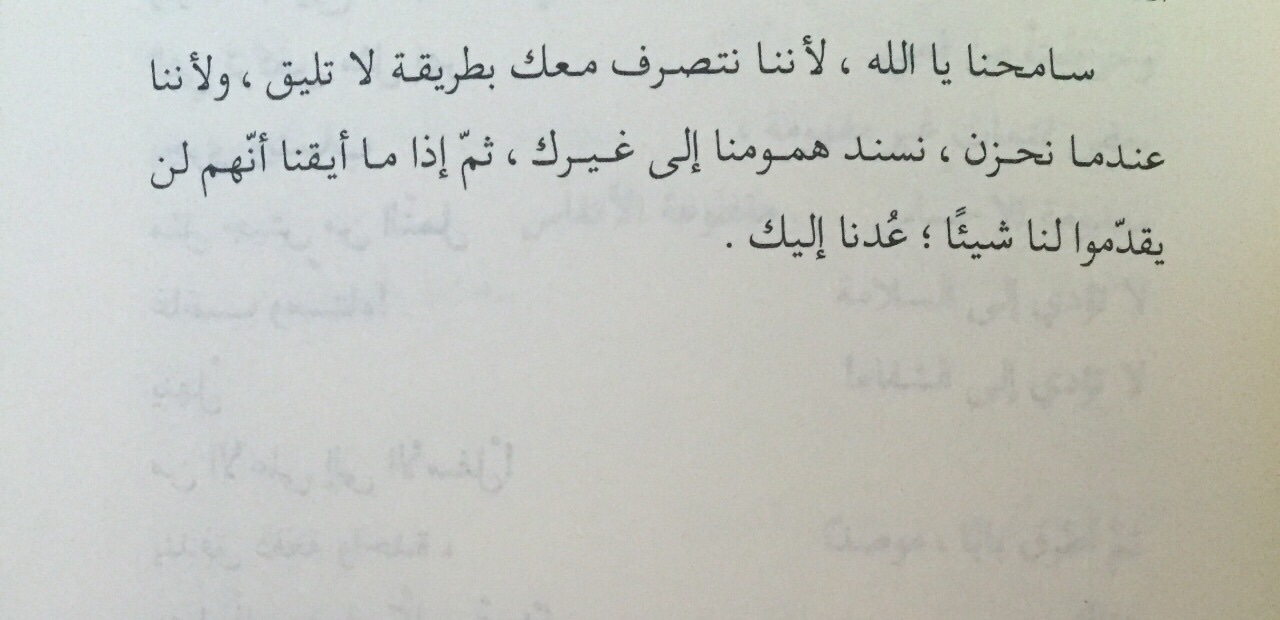 سامحنا يا الله ، لأننا نتصرف معك بطريقة لا تليق ، ولأننا
عندما نحزن ، نسند همومنا إلى غيرك ، ثمّ إذا ما أيقنا أنّهم لن
يقدّموا لنا شيئًا ؛ عُدنا إليك .